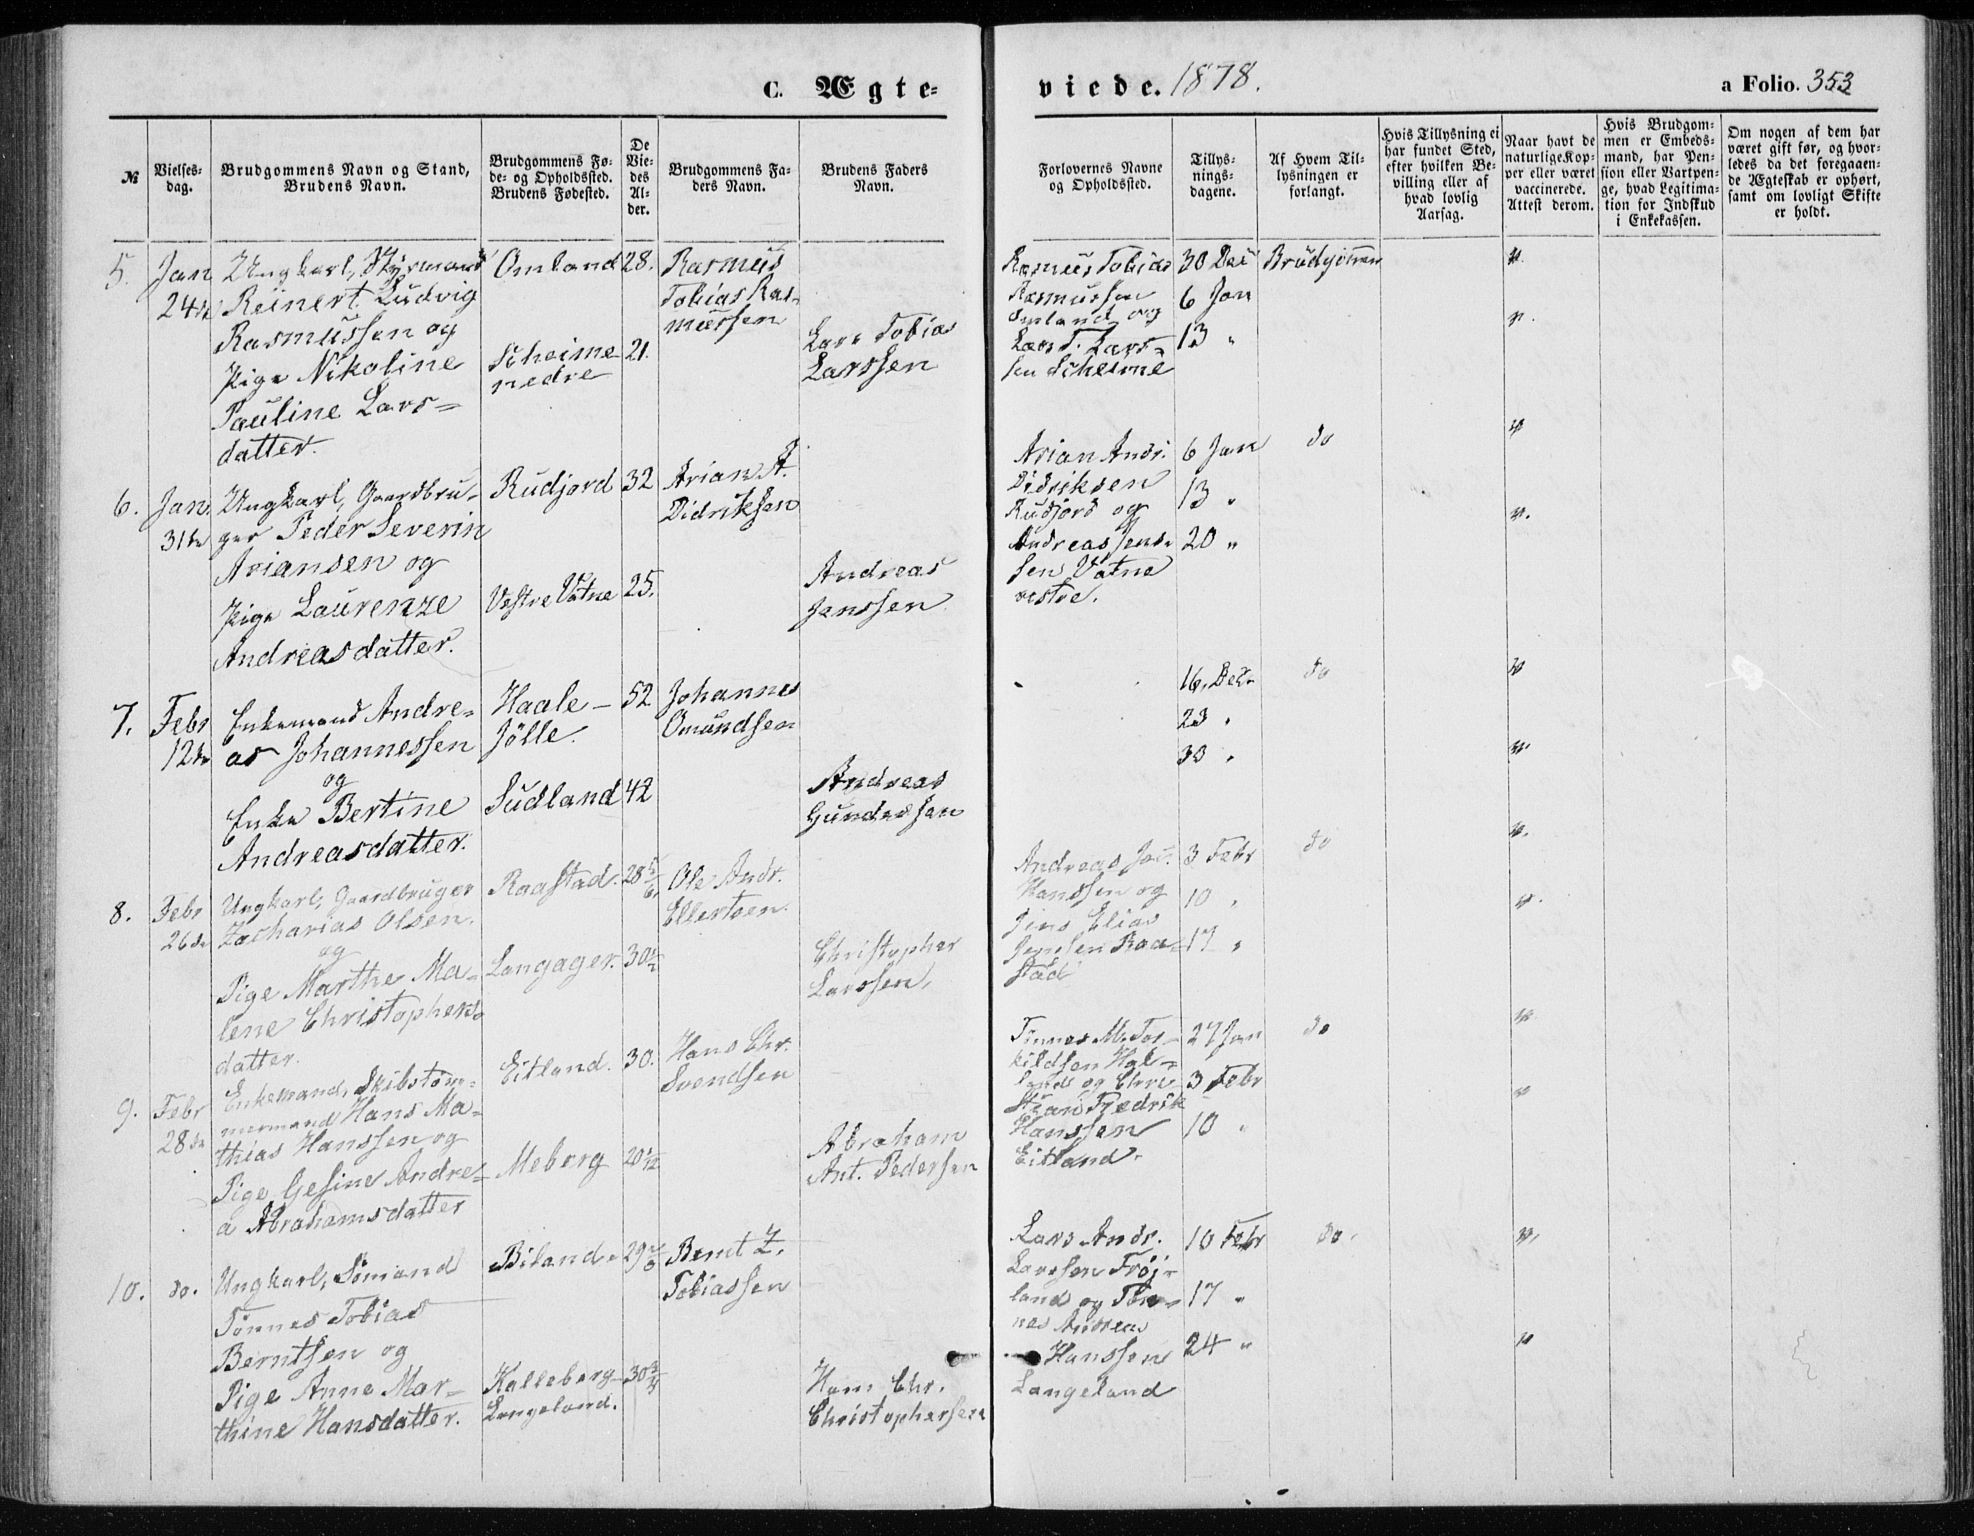 C. Ægte-
viede. 1878.
a Folio. 353
№
Vielses-
dag.
Brudgommens Navn og Stand,
Brudens Navn.
Brudgommens Fø-
de- og Opholdssted.
Brudens Fødested.
De
Vie-
des
Al-
der.
Brudgommens Fa-
ders Navn.
Brudens Faders
Navn.
Forlovernes Navne
og Opholdssted.
Tillys-
nings-
dagene.
Af Hvem Til-
lysningen er
forlangt.
Hvis Tillysning ei
har fundet Sted,
efter hvilken Be-
villing eller af
hvad lovlig
Aarsag.
Naar havt de
naturlige Kop-
per eller været
vaccinerede.
Attest derom.
Hvis Brudgom-
men er Embeds-
mand, har Pen-
sion eller Vartpen-
ge, hvad Legitima-
tion for Indskud
i Enkekassen.
Om nogen af dem har
været gift før, og hvor-
ledes da det foregaaen-
de Ægteskab er ophørt,
samt om lovligt Skifte
er holdt.
5.
Jan
24de
Ungkarl, Styrmand
Reinert Ludvig
Rasmussen og
Pige Nikoline
Pauline Lars-
datter.
Omland
Scheime
nedre
28.
21.
Rasmus
Tobias Ras-
mussen
Lars Tobias
Larssen
Rasmus Tobias
Rasmussen
Omland og
Lars T. Lars-
sen Scheime
30 Dec
6 Jan
13 "
Brudgommen
6.
Jan.
31te
Ungkarl, Gaardbru-
ger Peder Severin
Ariansen og
Pige Laurenze
Andreasdatter.
Rudjord
Vestre Vatne
32
25.
Arian A.
Didriksen
Andreas
Jenssen
Arian Andr.
Didriksen
Rudjord og
Andreas Jens-
sen Vatne
vestre.
6 Jan
13 "
20 "
do
7.
Febr
12te
Enkemand Andre-
as Johannessen
og
Enke Bertine
Andreasdatter.
Haale-
Jølle.
Sudland
52
42
Johannes
Omundsen
Andreas
Gundersen
16. Decr
23 "
30 "
do
8.
Febr
26de
Ungkarl, Gaardbruger
Zacharias Olsen.
og
Pige Marthe Ma-
lene Christophers-
datter.
Raastad.
Langager.
28 5/6
30 1/2
Ole Andr.
Ellertsen.
Christopher
Larssen,
Andreas Joc.
Hanssen og
Jens Elias
Jenssen Raa-
stad
3 Febr
10 "
17 "
do
9.
Febr
28de
Enkemand, Skibstøm-
mermand Hans Ma-
thias Hanssen og
Pige Gesine Andre-
a Abrahamsdatter
Eitland.
Meberg
30.
Hans Chr.
Svendsen
Abraham
Ant. Pedersen
Tønnes M. Tor-
kildsen Hal-
land og Chri-
stian Fredrik
Hanssen
Eitland.
27 Jan
3 Febr
10 "
do
10.
do.
Ungkarl, Sømand
Tønnes Tobias
Berntsen og
Pige Anne Mar-
thine Hansdatter.
Biland.
Kalleberg-
Langeland.
30 3/4
Bernt Z.
Tobiassen
Hans Chr.
Christophersen
Lars Andr.
Larssen Frøj-
land og Tøn-
nes Andreas
Hanssen
Langeland
10 Febr
17 "
24 "
do.